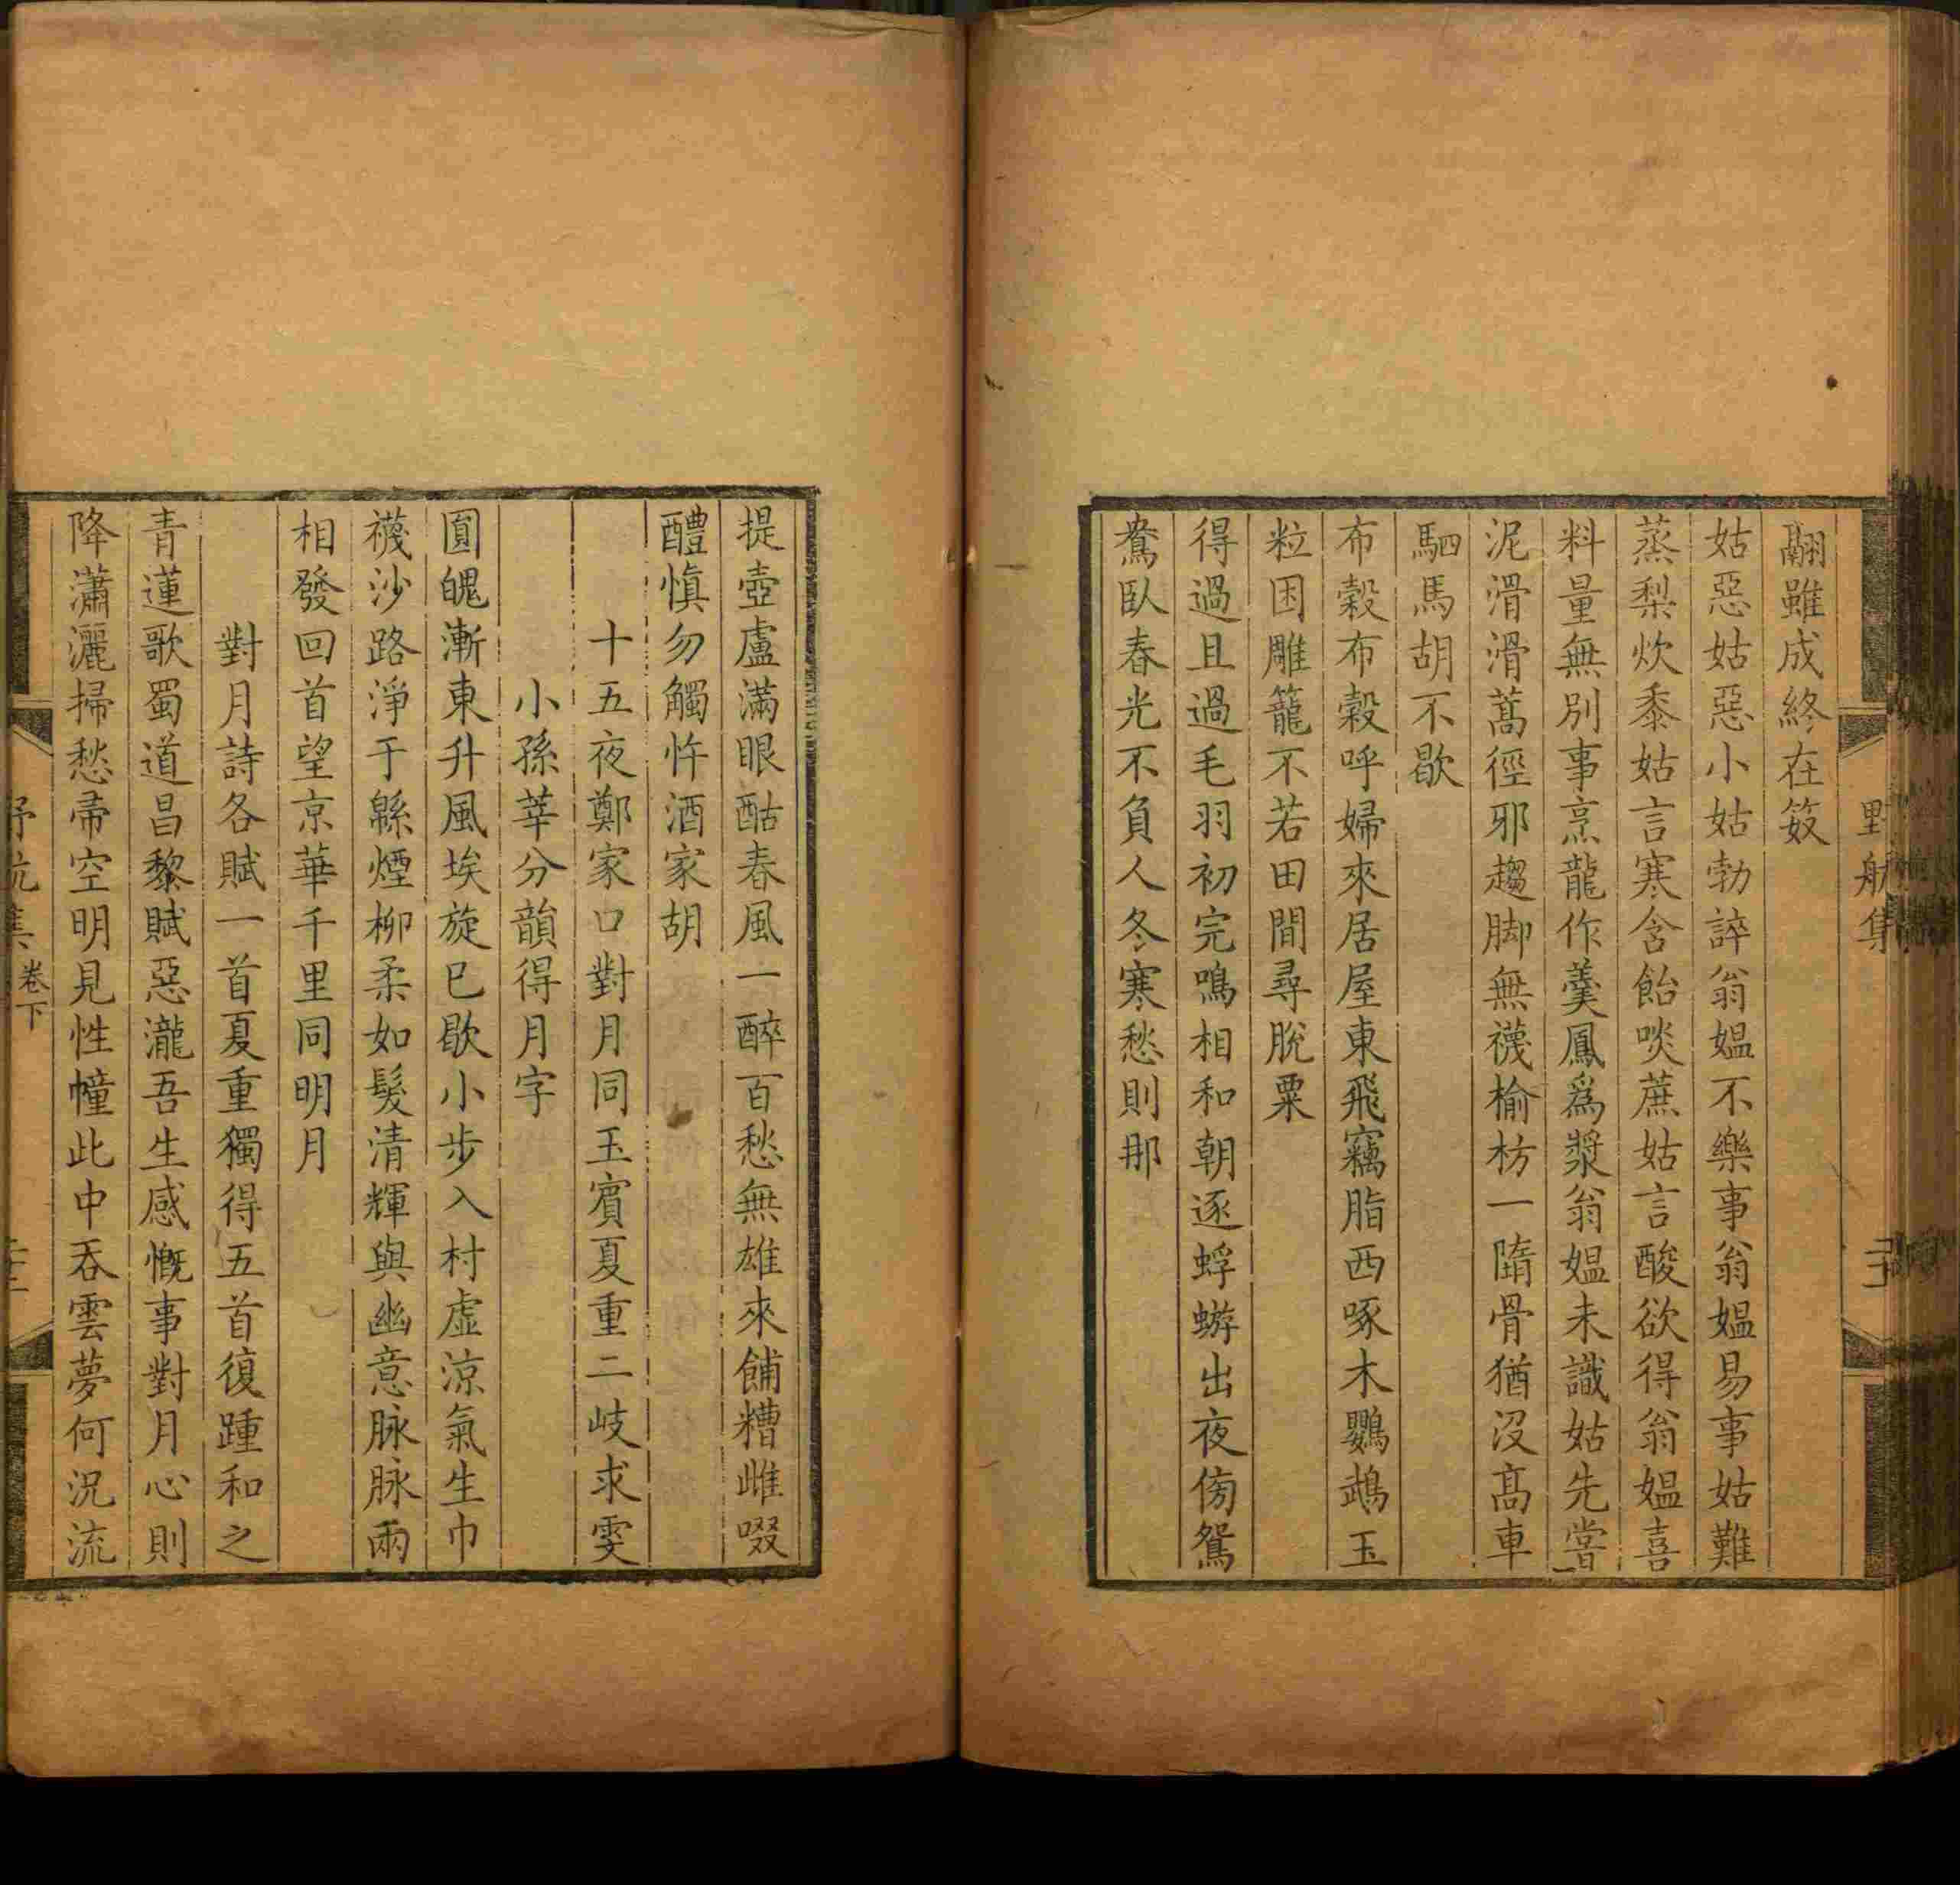 野航集
翮雖成終在笯
姑惡姑惡小姑勃誶翁媼不樂事翁媼易事姑難
蒸梨炊黍姑言寒含飴啖蔗姑言酸欲得翁媼喜
料量無別事烹龍作羹鳳爲漿翁媼未識姑先嘗
泥滑滑蒿徑邪趨脚無襪榆枋一隋骨猶沒髙車
駟馬胡不歇
布穀布穀呼婦來居屋東飛竊脂西啄木鸚鵡玉
粒困雕籠不若田間尋脫粟
得過且過毛羽初完鳴相和朝逐蜉蝣出夜傍鴛
鴦臥春光不負人冬寒愁則那
提壺盧滿眼酤春風一醉百愁無雄來餔糟雌啜
醴愼勿觸忤酒家胡
十五夜鄭家口對月同玉賓夏重二岐求雯
小孫莘分韻得月字
圓魄漸東升風埃旋巳歇小步入村虛涼氣生巾
襪沙路淨于緜煙柳柔如髮清輝與幽意脉脉兩
相發回首望京華千里同明月
對月詩各賦一首夏重獨得五首復踵和之
青蓮歌蜀道昌黎賦惡瀧吾生感慨事對月心則
降瀟灑掃愁帚空明見性幢此中吞雲夢何況流
卷下